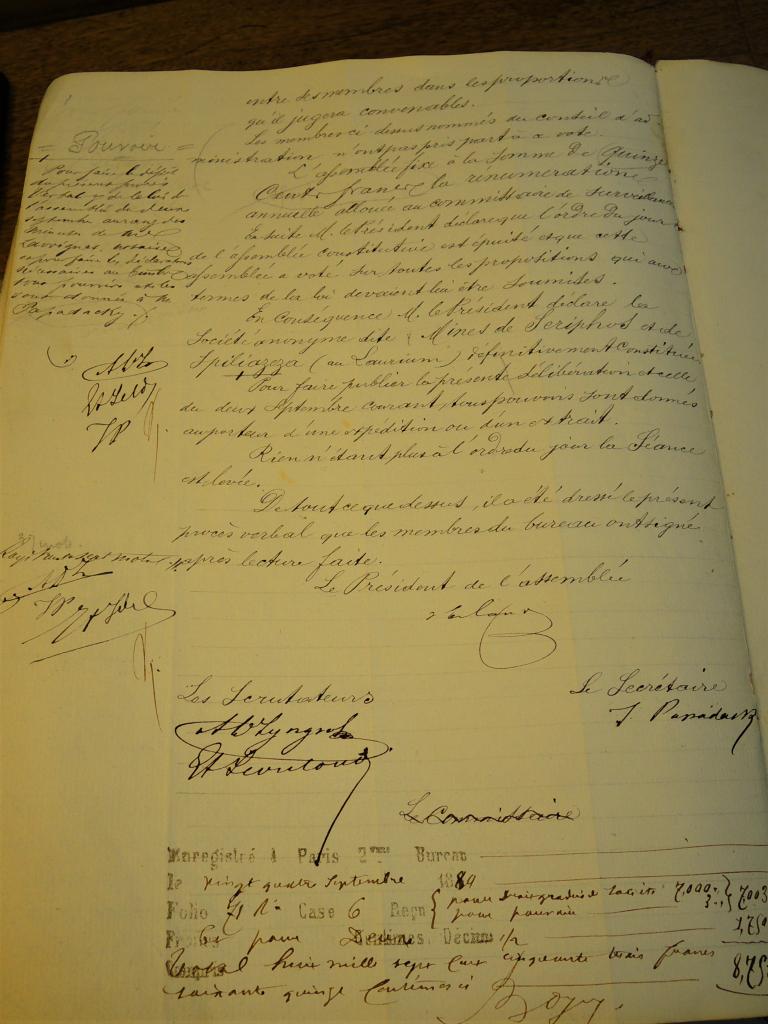 entre ses membres dans les proportions
qu'il jugera convenables.
Les membres ci dessus nommés du conseil d'ad-
ministration n'ont pas pris part à ce vote.
L'assemblée fixe à la somme de Quinze
Cents francs la rémunération
annuelle allouée au commissaire de surveillance
Ensuite M. le Président déclare que l'ordre du jour
de l'assemblée constitutive est épuisé et que cette
assemblée a voté sur toutes les propositions qui aux
termes de la loi devaient lui être soumises.
En conséquence M. le Président déclare la
Société anonyme dite « Mines de Seriphos et de
Spiliazeza (au Laurium) définitivement constituée
Pour faire publier la présente délibération et celle
du deux Septembre courant, tous pouvoirs sont donnés
au porteur d'une expédition ou d'un extrait.
Rien n'étant plus à l'ordre du jour la Séance
est levée.
De tout ce que dessus, il a été dressé le présent
procès verbal que les membres du bureau ont signé
après lecture faite.
Le Président de l'assemblée
= Pouvoir =
Pour faire le dépôt
du présent procès
verbal et de celui de
l'assemblée du deux
septembre au rang des
minutes de Me
Lavoignat, notaire
et pour faire les déclarations
nécessaires
tous pouvoirs
sont donnés à M.
Papadacky.
JP
JP
Les Scrutateurs
Le Secrétaire
J. Papadacky
Le Commissaire
Enregistré à Paris 2me Bureau
le vingt quatre Septembre 1880
Folio 71 Ro Case 6 Reçu
7,000 7,003
pour pouvoir 3
Décimes 1/2 1,750
Total huit mille sept cent cinquante trois francs 8,75
soixante quinze centimes